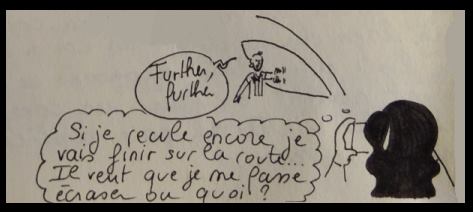 Further,
further
Si je recule encore, je
vais finir sur la route...
Il veut que je me fasse
écraser ou quoi ?